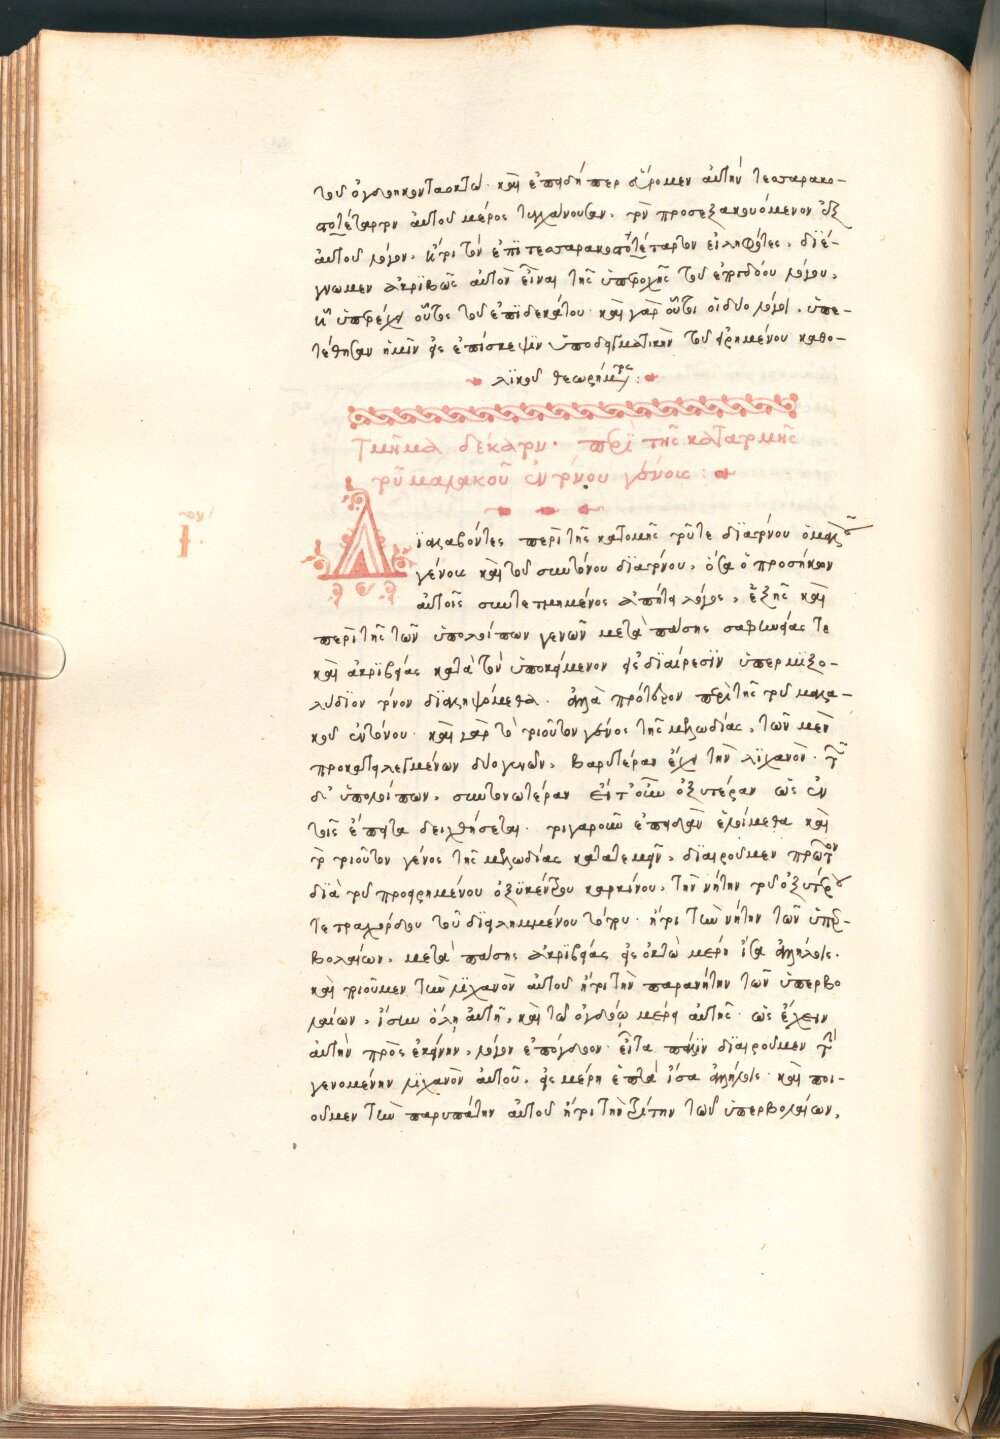 τοῦ ὀγδοηκονταοκτώ· καὶ ἐπειδήπερ εὕρομεν αὐτὴν τεσσαρακο-
στοτέταρτον αὐτοῦ μέρος τυγχάνουσαν, τὸν προσεξακουόμενον ἐξ
αὐτοῦ λόγον, ἤτοι τὸν ἐπὶ τεσσαρακοστοτέταρτον εἰληφότες, διέ-
γνωμεν ἀκριβῶς αὐτὸν εἶναι τῆς ὑπεροχῆς τοῦ ἐπογδόου λόγου,
ᾗ ὑπερέχει οὗτος τοῦ ἐπιδεκάτου· καὶ γὰρ οὗτοι οἱ δύο λόγοι, ὑπε-
τέθησαν ἡμῖν εἰς ἐπίσκεψιν ὑποδειγματικὴν τοῦ εἰρημένου καθο-
λικοῦ θεωρήματος:
τμῆμα δέκατον· περὶ τῆς κατατομῆς
τοῦ μαλακοῦ ἐντόνου γένους:
τον
ι·
Διαλαβόντες περὶ τῆς κατομῆς τοῦτε διατόνου ὁμαλοῦ
γένους καὶ τοῦ συντόνου διατόνου, ὅσα ὁ προσήκων
αὐτοῖς συντετμημένος ἀπῄτει λόγος, ἑξῆς καὶ
περὶ τῆς τῶν ὑπολοίπων γενῶν μετὰ πάσης σαφηνείας τε
καὶ ἀκριβείας κατὰ τὸν ὑποκείμενον εἰς διαίρεσιν ὑπερμιξο-
λύδιον τόνον διαληψόμεθα· ἀλλὰ πρότερον περὶ τῆς τοῦ μαλα-
κοῦ ἐντόνου· καὶ γὰρ τὸ τοιοῦτον γένος τῆς μελῳδίας, τῶν μὲν
προκατειλεγμένων δύο γενῶν, βαρυτέραν ἔχει τὴν λιχανόν· τῶν
δ' ὑπολοίπων, συντονωτέραν εἴτ' οὖν ὀξυτέραν ὡς ἐν
τοῖς ἔπειτα δειχθήσεται· τοιγαροῦν ἐπειδὰν ἑλοίμεθα καὶ
τὸ τοιοῦτον γένος τῆς μελῳδίας κατατεμεῖν, διαιροῦμεν πρῶτον
διὰ τοῦ προειρημένου ὀξυκέντρου καρκίνου, τὴν νήτην τοῦ ὀξυτέρου
τετραχόρδου τοῦ διειλημμένου τόνου· ἤτοι τὴν νήτην τῶν ὑπερ-
βολαίων, μετὰ πάσης ἀκριβείας εἰς ὀκτὼ μέρη ἴσα ἀλλήλοις·
καὶ ποιοῦμεν τὴν λιχανὸν αὐτοῦ ἤτοι τὴν παρανήτην τῶν ὑπερβο
λαίων, ἴσην ὅλῃ αὐτῇ, καὶ τῷ ὀγδόῳ μέρει αὐτῆς· ὡς ἔχειν
αὐτὴν πρὸς ἐκείνην, λόγον ἐπόγδοον· εἶτα πάλιν διαιροῦμεν τὴν
γενομένην λιχανὸν αὐτοῦ, εἰς μέρη ἑπτὰ ἴσα ἀλλήλοις· καὶ ποι-
οῦμεν τὴν παρυπάτην αὐτοῦ ἤτοι τὴν τρίτην τῶν ὑπερβολαίων,